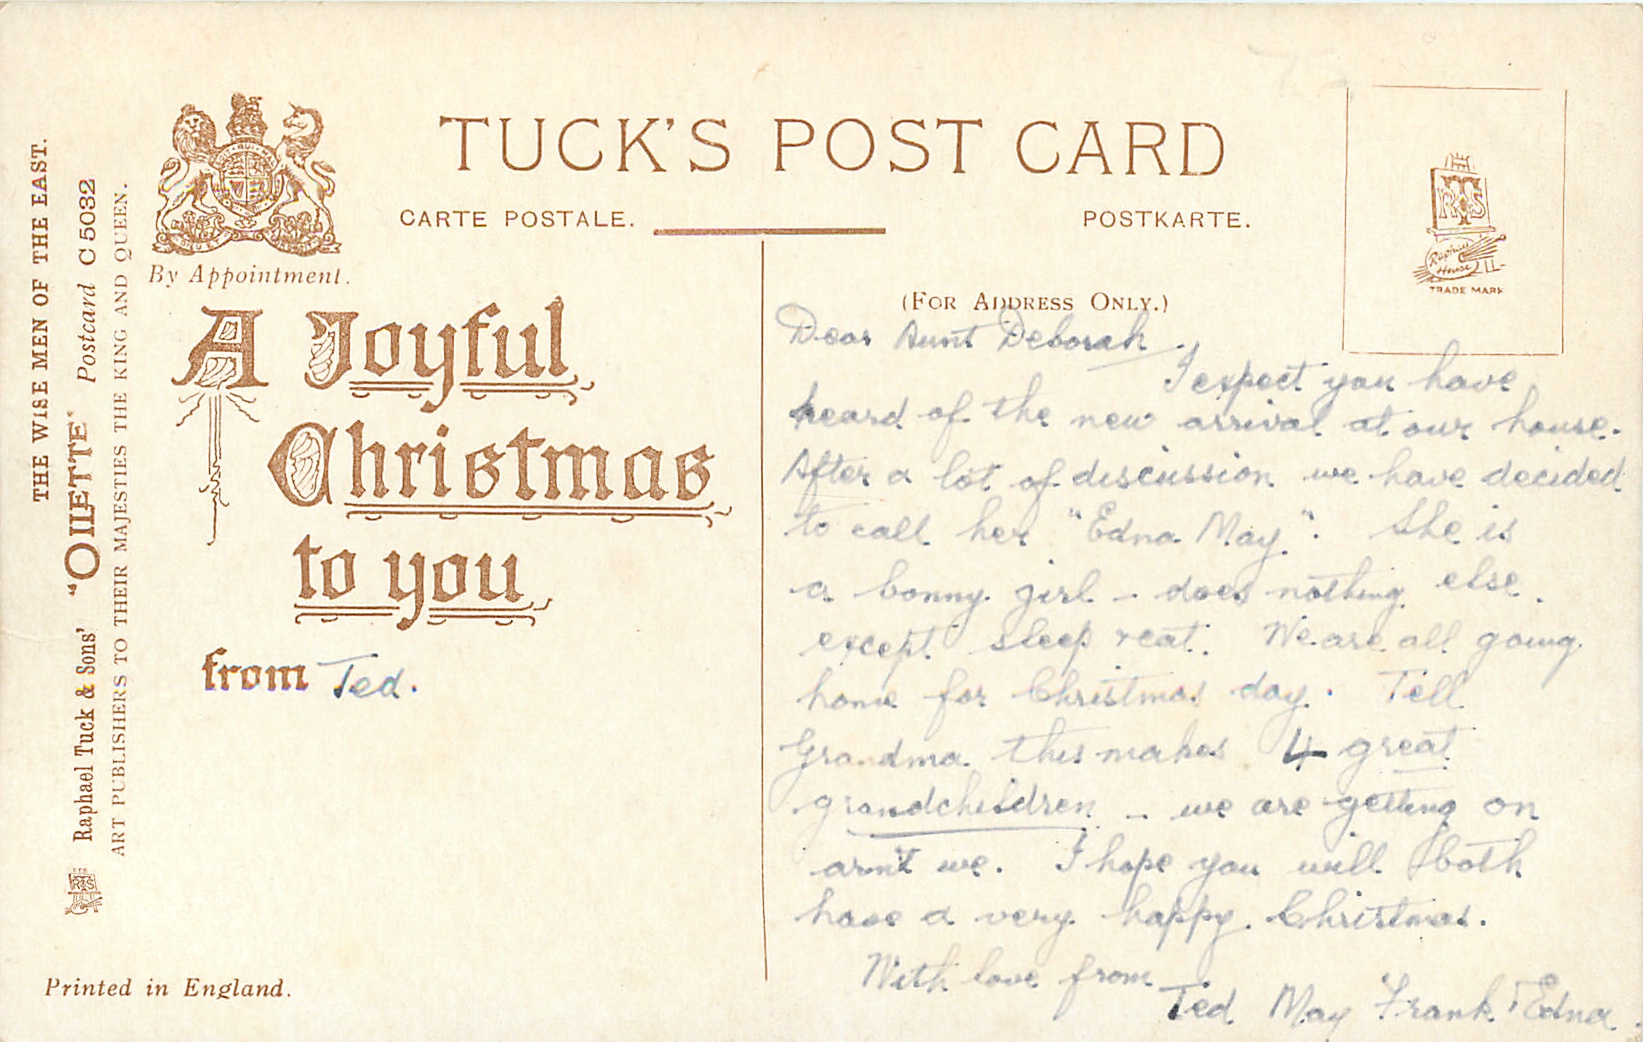 THE WISE MEN OF THE EAST.
Raphael Tuck & Sons' "OILETTE" Postcard C 5032
ART PUBLISHERS TO THEIR MAJESTIES THE KING AND QUEEN.
By Appointment.
TUCK'S POST CARD
CARTE POSTALE.
POSTKARTE.
RTS
Raphael
House
TRADE MARK
A Joyful
Christmas
to you
from Ted.
Printed in England.
(FOR ADDRESS ONLY.)
Dear Aunt Deborah
I expect you have
heard of the new arrival at our house.
After a lot of discussion we have decided
to call her "Edna May". She is
a bonny girl - does nothing else
except sleep & eat. We are all going
home for Christmas day. Tell
Grandma this makes 4 great
grandchildren - we are getting on
arn't we. I hope you will both
have a very happy Christmas.
With love from
Ted May Frank & Edna.